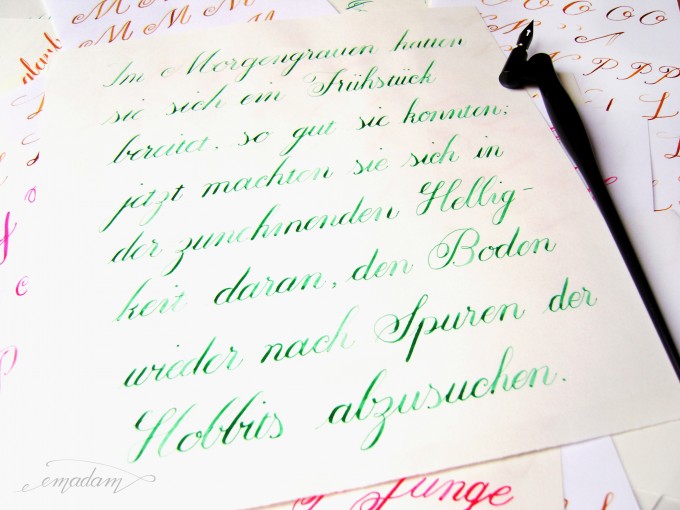 Im Morgengrauen hatten
sie sich ein Frühstück
bereitet, so gut sie konnten;
jetzt machten sie sich in
der zunehmenden Hellig-
keit daran, den Boden
wieder nach Spuren der
Hobbits abzusuchen.
emadam
Junge